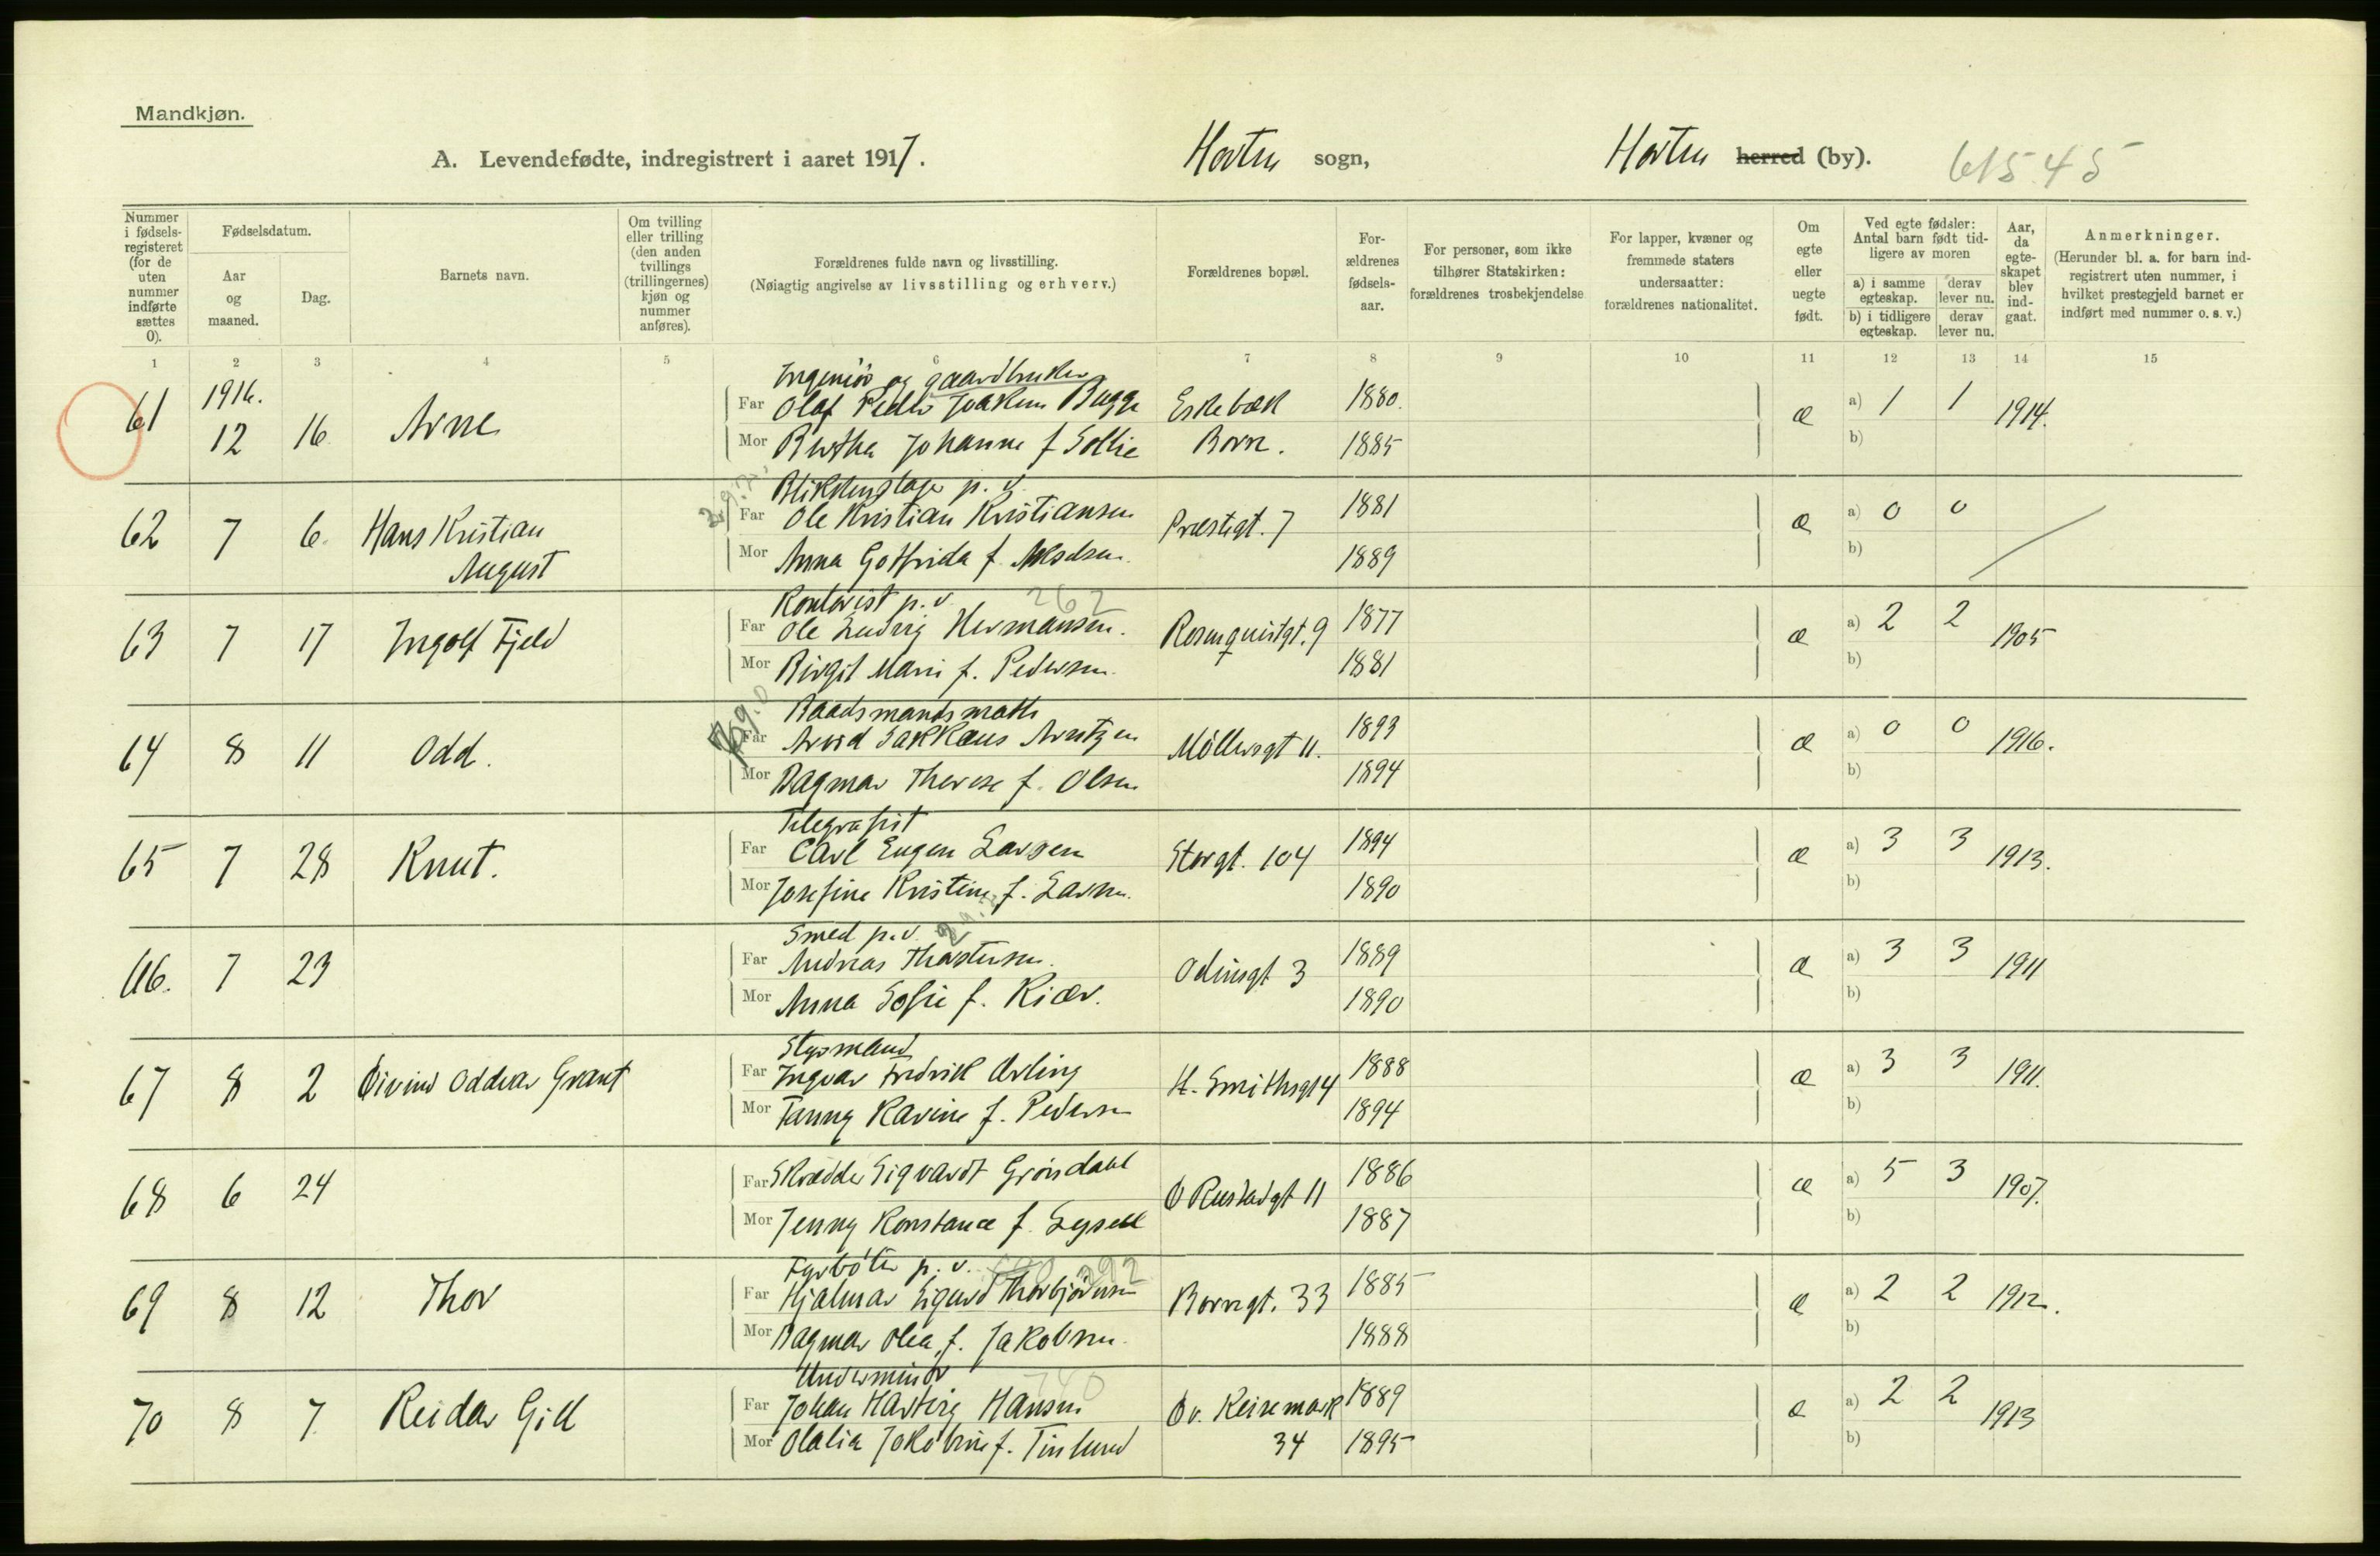 Mandkjøn.
A. Levendefødte, indregistrert i aaret 1917. Horten sogn, Horten herred (by). 61545
Nummer i fødsels-registeret (for de uten nummer indførte sættes 0).
Fødselsdatum.
Aar og maaned.
Dag.
Barnets navn.
Om tvilling eller trilling (den anden tvillings (trillingernes) kjøn og nummer anføres).
Forældrenes fulde navn og livsstilling.
(Nøiagtig angivelse av livsstilling og erhverv.)
Forældrenes bopæl.
For-ældrenes fødsels-aar.
For personer, som ikke tilhører Statskirken: forældrenes trosbekjendelse
For lapper, kvæner og fremmede staters undersaatter: forældrenes nationalitet.
Om egte eller uegte født.
Ved egte fødsler: Antal barn født tid-ligere av moren
a) i samme egteskap.
derav lever nu.
b) i tidligere egteskap.
derav lever nu.
Aar, da egte-skapet blev ind-gaat.
Anmerkninger.
(Herunder bl. a. for barn ind-registrert uten nummer, i hvilket prestegjeld barnet er indført med nummer o. s. v.)
1 2 3 4 5 6 7 8 9 10 11 12 13 14 15
Ingeniør og gaardbruker
61 1916. 12 16 Arne Far Olaf Peder Joakim Bugge Eskebæk 1880. æ a) 1 1 1914.
Mor Berthe Johanne f Sollie Borre. 1885 b)
Blikkenslager p. v.
62 7 6 Hans Kristian August Far Ole Kristian Kristiansen Præstegt. 7 1881 æ a) 0 0
Mor Anna Gotfrida f. Akselsen. 1889 b)
Kontorist p. v. 262
63 7 17 Ingolf Fjeld Far Ole Ludvig Hermansen. Rosenquistgt. 9 1877 æ a) 2 2 1905
Mor Birgit Marie f. Pedersen 1881 b)
Baadsmandsmath
64 8 11 Odd. Far Arvid Sakkæus Arntzen Møllersgt 11. 1893 æ a) 0 0 1916.
Mor Dagmar Therese f. Olsen 1894 b)
Telegrafist
65 7 28 Knut. Far Carl Eugen Larsen Storgt. 104 1894 æ a) 3 3 1913.
Mor Josefine Kristine f. Larsen. 1890 b)
Smed p. v.
66. 7 23 Far Andreas Thorstensen. Odinsgt 3 1889 æ a) 3 3 1911
Mor Anna Sofie f. Kiær. 1890 b)
Styrmand
67 8 2 Øivind Oddvar Grant Far Ingvar Fredrik Ørling H. Smithsgt 4 1888 æ a) 3 3 1911.
Mor Fanny Karine f. Pedersen 1894 b)
68 6 24 Far Skrædder Sigvardt Grønsdahl O Rustadgt 11 1886 æ a) 5 3 1907.
Mor Jenny Konstance f. Lysell 1887 b)
Fyrbøter p. v. 292
69 8 12 Thor Far Hjalmar Sigurd Thorbjørnsen Borregt. 33 1885 æ a) 2 2 1912.
Mor Dagmar Olea, f. Jakobsen. 1888 b)
Underminør 740
70 8 7 Reidar Gill Far Johan Hartvig Hansen Øv. Keisemark 34 1889 æ a) 2 2 1913
Mor Olalia Jakobine f. Tinlund 1895 b)